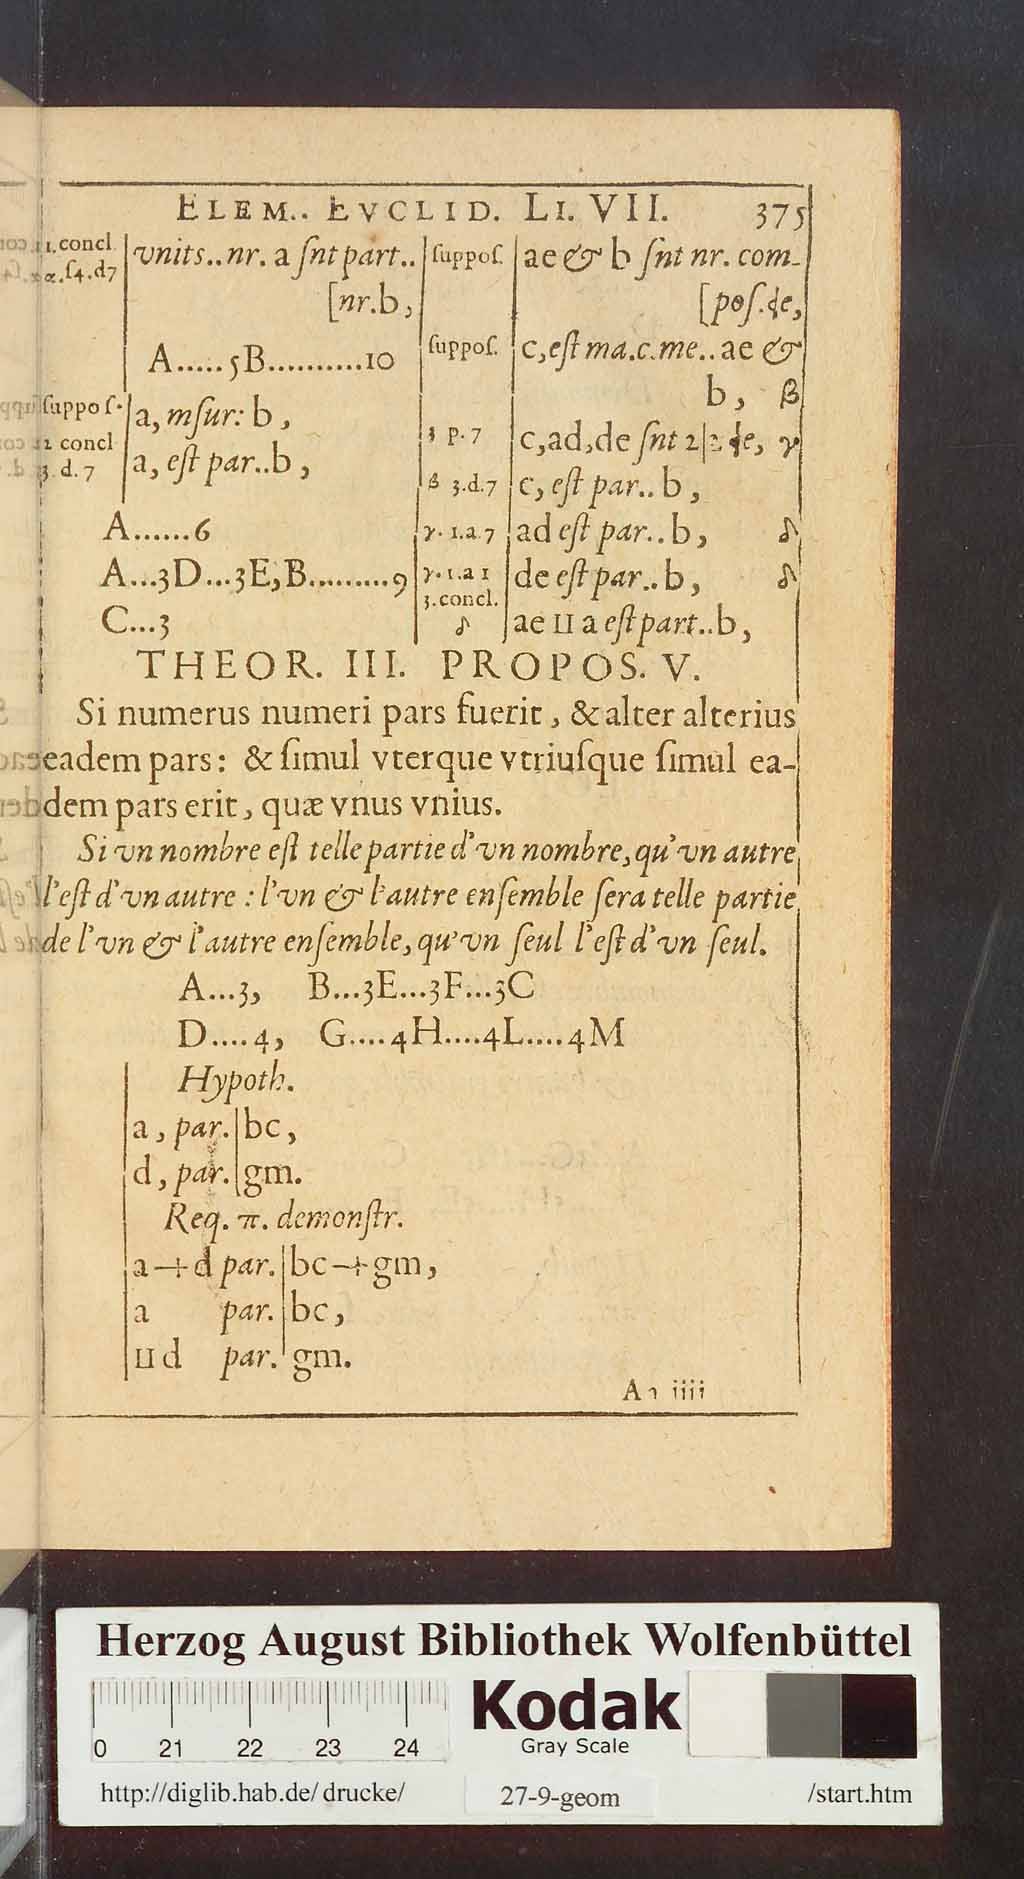 ELEM.. EVCLID. LI. VII. 375
1. concl. vnits..nr. a ſnt part..
α.ſ4.d7
[nr.b,
A.....5B..........10
ſuppoſ. a, mſur: b,
2 concl
3. d. 7 a, eſt par..b,
A......6
A...3D...3E,B.........9
C...3
ſuppoſ. ae & b ſnt nr. com-
[poſ.de,
ſuppoſ. c,eſt ma.c.me.. ae &
b, β
3 p. 7 c,ad,de ſnt 2|2 de, γ
β 3.d.7 c, eſt par.. b,
γ. 1.a.7 ad eſt par.. b, δ
γ.1.a 1 de eſt par.. b, δ
3.concl.
δ ae II a eſt part..b,
THEOR. III. PROPOS. V.
Si numerus numeri pars fuerit, & alter alterius
eadem pars: & ſimul vterque vtriuſque ſimul ea-
dem pars erit, quæ vnus vnius.
Si vn nombre eſt telle partie d'vn nombre, qu'vn autre
l'eſt d'vn autre: l'vn & l'autre enſemble ſera telle partie
de l'vn & l'autre enſemble, qu'vn ſeul l'eſt d'vn ſeul.
A...3, B...3E...3F...3C
D....4, G....4H....4L....4M
Hypoth.
a, par.|bc,
d, par.|gm.
Req. π. demonſtr.
a+d par.|bc+gm,
a par.|bc,
II d par.|gm.
Aa iiii
Herzog August Bibliothek Wolfenbüttel
Kodak
Gray Scale
0 21 22 23 24
http://diglib.hab.de/drucke/ 27-9-geom /start.htm